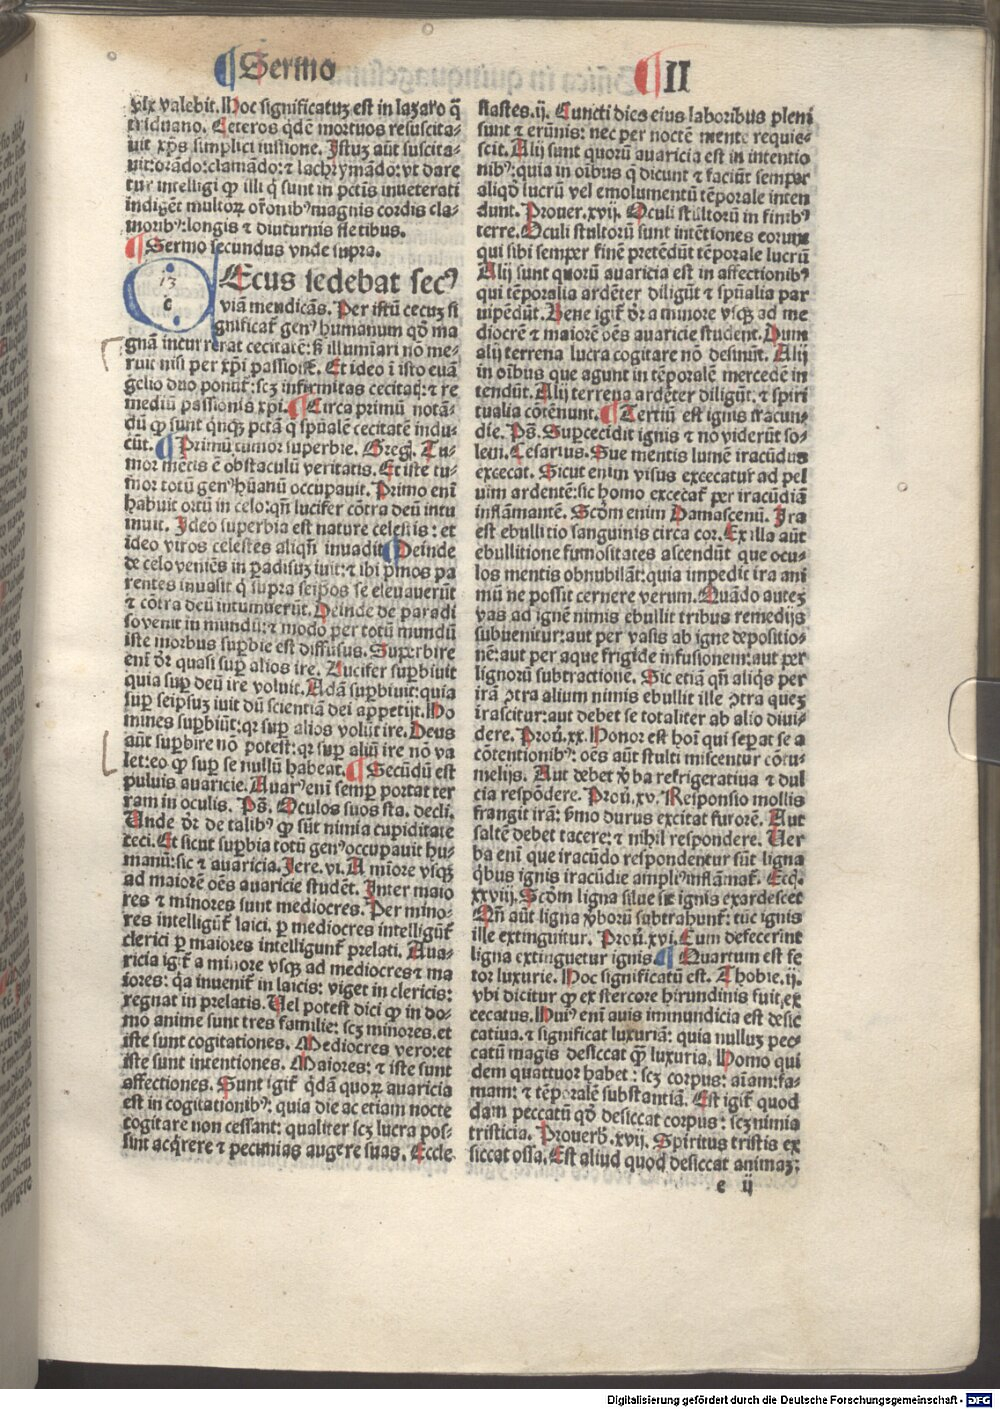 ¶ Sermo
¶ II
vix valebit. Hoc significatuꝫ est in lazaro q̄
triduano. Ceteros qͥdē mortuos resuscita-
uit xp̄s simplici iussione. Istuꝫ aūt suscita-
uit: orādo: clamādo: ⁊ lachrymādo: vt dare
tur intelligi ꝙ illi q̄ sunt in pctīs inueterati
indigēt multoꝝ or̄onibꝰ magnis cordis cla-
moribꝰ: longis ⁊ diuturnis fletibus.
¶ Sermo secundus vnde supra.
Ecus sedebat secꝰ
viā mendicās. Per istū cecuꝫ si
gnificat᷑ genꝰ humanum qd̄ ma
gnā incurrerat cecitatē: sꝫ illumīari nō me-
ruit nisi per xp̄i passionē. Et ideo ī isto euā
gelio duo ponūt᷑: scꝫ infirmitas cecitaꝭ: ⁊ re
mediū passionis xp̄i. ¶ Circa primū notā-
dū ꝙ sunt qͥnqꝫ pctā q̄ spūalē cecitatē indu-
cūt. ¶ Primū tumor superbie. Greg. Tu-
mor mētis ē obstaculū veritatis. Et iste tu-
mor totū genꝰ hūanū occupauit. Primo enī
habuit ortū in celo: qn̄ lucifer cōtra deū intu
muit. Ideo superbia est nature celestis: et
ideo viros celestes aliqn̄ inuadit ¶ Deinde
de celo veniēs in padisuꝫ iuit: ⁊ ibi pͥmos pa
rentes inuasit qͥ supra seip̄os se eleuauerūt
⁊ cōtra deū intumuerūt. Deinde de paradi
so venit in mundū: ⁊ modo per totū mundū
iste morbus suꝑbie est diffusus. Superbire
enī dr̄ quasi suꝑ alios ire. Lucifer suꝑbiuit
quia suꝑ deū ire voluit. Adā suꝑbiuit: quia
suꝑ seipsuꝫ iuit dū scientiā dei appetijt. Ho
mines suꝑbiūt: qꝛ suꝑ alios volūt ire. Deus
aūt suꝑbire nō potest: qꝛ suꝑ aliū ire nō va
let: eo ꝙ suꝑ se nullū habeat. ¶ Secūdū est
puluis auaricie. Auarꝰ enī semꝑ portat ter
ram in oculis. Ps̄. Oculos suos sta. decli.
Unde dr̄ de talibꝰ ꝙ sūt nimia cupiditate
ceci. Et sicut suꝑbia totū genꝰ occupauit hu-
manū: sic ⁊ auaricia. Jere. vi. A mīore vsqꝫ
ad maiorē oēs auaricie studēt. Inter maio
res ⁊ minores sunt mediocres. Per mino-
res intelligūt᷑ laici. per mediocres intelligūt᷑
clerici per maiores intelligunt᷑ prelati. Aua-
ricia igit᷑ a minore vsqꝫ ad mediocres ⁊ ma
iores: qꝛ inuenit᷑ in laicis: viget in clericis:
regnat in prelatis. Uel potest dici ꝙ in do-
mo anime sunt tres familie: scꝫ minores. et
iste sunt cogitationes. Mediocres vero: et
iste sunt intentiones. Maiores: ⁊ iste sunt
affectiones. Sunt igit᷑ qͥdā quoꝝ auaricia
est in cogitationibꝰ: quia die ac etiam nocte
cogitare non cessant: qualiter scꝫ lucra pos-
sint acqͥrere ⁊ pecunias augere suas. Eccle
siastes. ij. Cuncti dies eius laboribus pleni
sunt ⁊ erūnis: nec per noctē mente requie-
scit. Alij sunt quorū auaricia est in intentio
nibꝰ: quia in oībus q̄ dicunt ⁊ faciūt semper
aliqd̄ lucrū vel emolumentū tēporale inten
dunt. Prouer. xvij. Oculi stultorū in finibꝰ
terre. Oculi stultorū sunt intētiones eorum
qui sibi semper finē pretēdūt tēporale lucrū
Alij sunt quorū auaricia est in affectionibꝰ
qui tēporalia ardēter diligūt ⁊ spūalia par
uipēdūt. Bene igit᷑ dr̄ a minore vsqꝫ ad me
diocrē ⁊ maiorē oēs auaricie student. Dum
alij terrena lucra cogitare nō desinūt. Alij
in oībus que agunt in tēporalē mercedē in
tendūt. Alij terrena ardēter diligūt. ⁊ spiri
tualia cōtēnunt. ¶ Tertiū est ignis iracun-
die. Ps̄. Supcecidit ignis ⁊ nō viderūt so-
lem. Cesarius. Sue mentis lumē iracūdus
excecat. Sicut enim visus excecatur ad pel
uim ardentē: sic homo excecat᷑ per iracūdiā
inflāmantē. Scd̄m enim Damascenū. Ira
est ebullitio sanguinis circa cor. Ex illa aūt
ebullitione fumositates ascendūt que ocu-
los mentis obnubilāt: quia impedit ira ani
mū ne possit cernere verum. Quādo auteꝫ
vas ad ignē nimis ebullit tribus remedijs
subuenitur: aut per vasis ab igne depositio-
nē: aut per aque frigide infusionem: aut per
lignorū subtractione. Sic etiā qn̄ aliqͥs per
irā ꝯtra alium nimis ebullit ille ꝯtra queꝫ
irascitur: aut debet se totaliter ab alio diui-
dere. Prou̇. xx. Honor est hoī qui sepat se a
cōtentionibꝰ: oēs aūt stulti miscentur cōtu-
melijs. Aut debet v̄ba refrigeratiua ⁊ dul
cia respōdere. Prou̇. xv. Responsio mollis
frangit irā: sermo durus excitat furorē. Aut
saltē debet tacere: ⁊ nihil respondere. Uer
ba enī que iracūdo respondentur sūt ligna
qͥbus ignis iracūdie ampliꝰ inflāmat᷑. Eccͥ.
xxviij. Scd̄m ligna silue sic ignis exardescet
Qn̄ aūt ligna v̄borū subtrahunt᷑: tūc ignis
ille extinguitur. Prou̇. xvi. Cum defecerint
ligna extinguetur ignis. ¶ Quartum est fe
tor luxurie. Hoc significatū est. Thobie. ij.
vbi dicitur ꝙ ex stercore hirundinis fuit ex
cecatus. Huiꝰ enī auis immundicia est desic
catiua. ⁊ significat luxuriā: quia nulluꝫ pec-
catū magis desiccat ꝙ̄ luxuria. Homo qui
dem quattuor habet: scꝫ corpus: aīam: fa-
mam: ⁊ tēporalē substantiā. Est igit᷑ quod
dam peccatū qd̄ desiccat corpus: scꝫ nimia
tristicia. Prouerb. xvij. Spiritus tristis ex
siccat ossa. Est aliud quod desiccat animaꝫ:
e ij
Digitalisierung gefördert durch die Deutsche Forschungsgemeinschaft - DFG